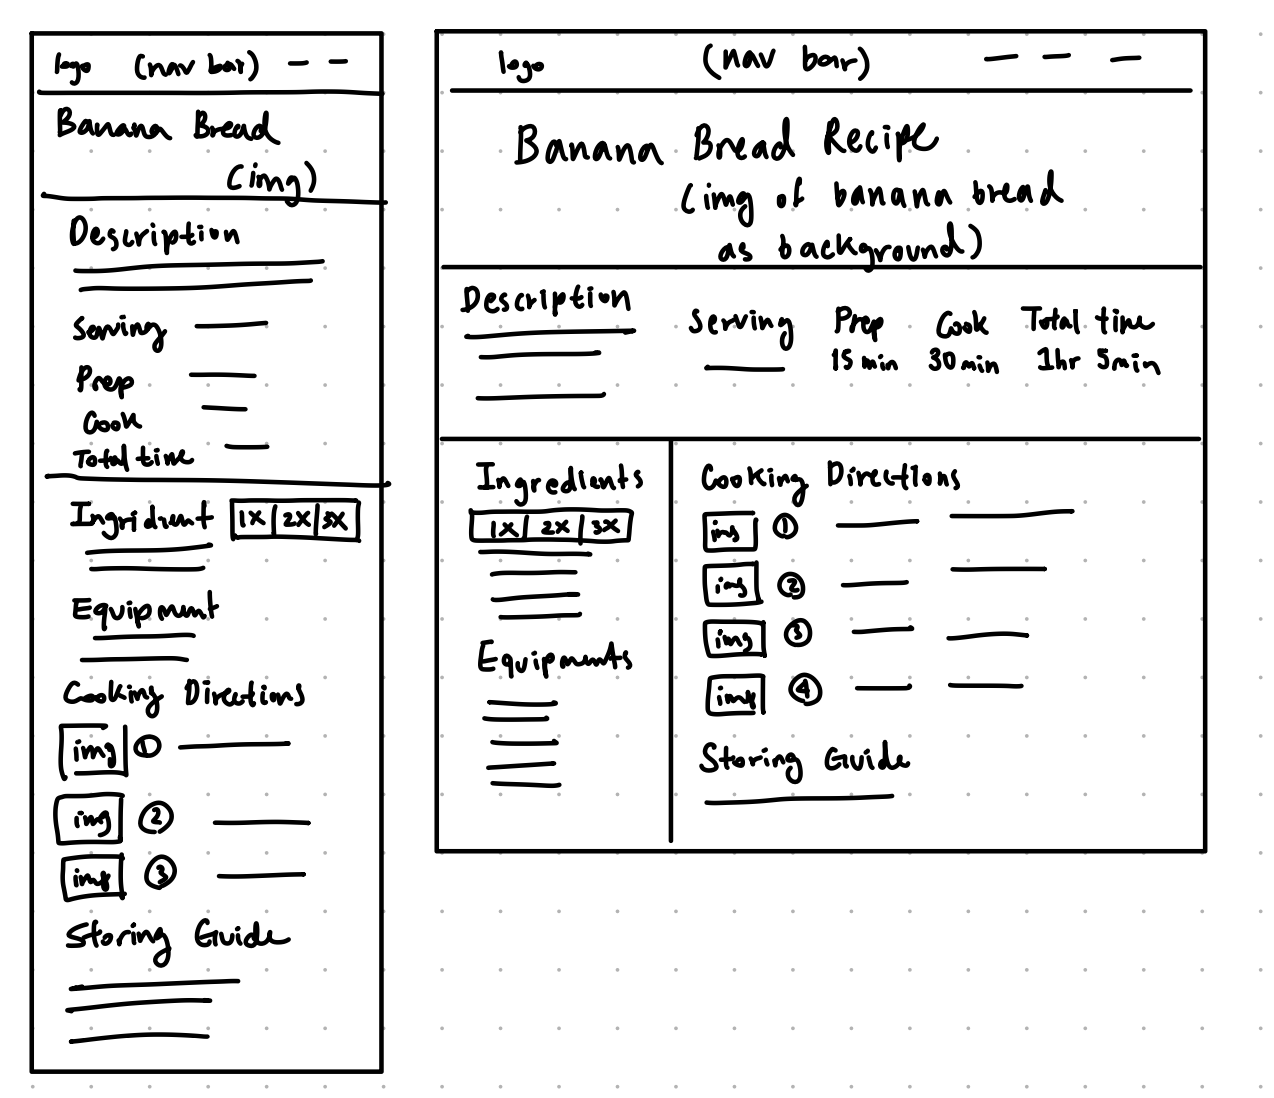 logo (nav bar)
Banana Bread
(img)
Description
Serving
Prep
Cook
Total time
Ingridient 1X 2X 3X
Equipment
Cooking Directions
img 1
img 2
img 3
Storing Guide
logo (nav bar)
Banana Bread Recipe
(img of banana bread
as background)
Description
Serving Prep Cook Total time
15 min 30 min 1hr 5min
Ingredients
1X 2X 3X
Equipments
Cooking Directions
img 1
img 2
img 3
img 4
Storing Guide